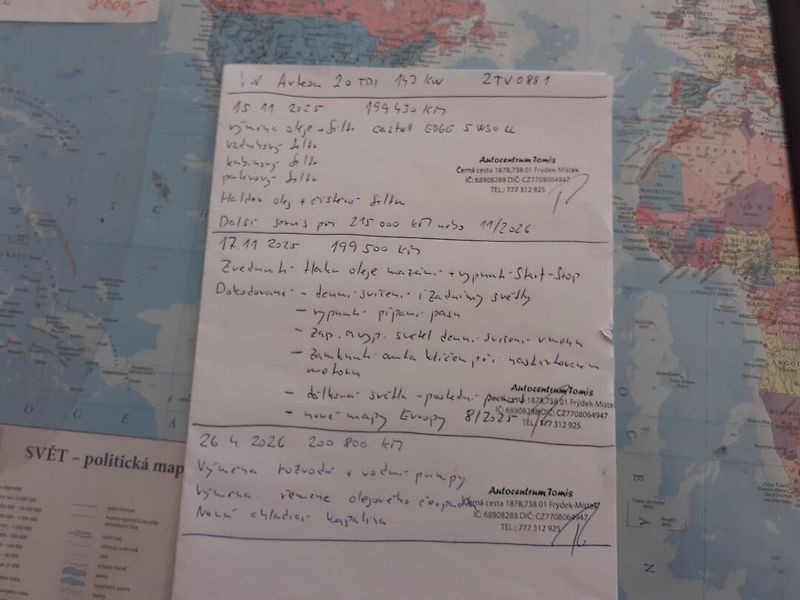 8000,-
VW Arteon 2.0 TDI 147 kW 2TV0881
15.11.2025 199 430 KM
výměna oleje + filtr castrol EDGE 5W30 LL
vzduchový filtr
kabinový filtr
palivový filtr
Haldex olej + čistění filtru
Další servis při 215 000 KM nebo 11/2026
Autocentrum Tomis
Černá cesta 1878,738 01 Frýdek-Místek
IČ: 68908288 DIČ: CZ7708064947
TEL.: 777 312 925
17.11 2025 199 500 KM
Zvednutí tlaku oleje mazání + vypnutí Start-Stop
Dokodované - denní svícení i zadními světly
- vypnutí pípání pasu
- zap. a vyp. světel denní svícení v menu
- zamknutí auta klíčem při nastartovaném
motoru
- dálková světla - poslední
- nové mapy Evropy 8/2025
Autocentrum Tomis
1878,738 01 Frýdek-Míste
IČ: 68908288 DIČ: CZ7708064947
TEL.: 777 312 925
26.4. 2026 200 800 KM
Výměna rozvodů + vodní pumpy
Výměna řemene olejového čerpadla
Nová chladící kapalina
Autocentrum Tomis
Černá cesta 1878,738 01 Frýdek-Místek
IČ: 68908288 DIČ: CZ7708064947
TEL.: 777 312 925
SVĚT – politická map
O C E Á
O C E Á N